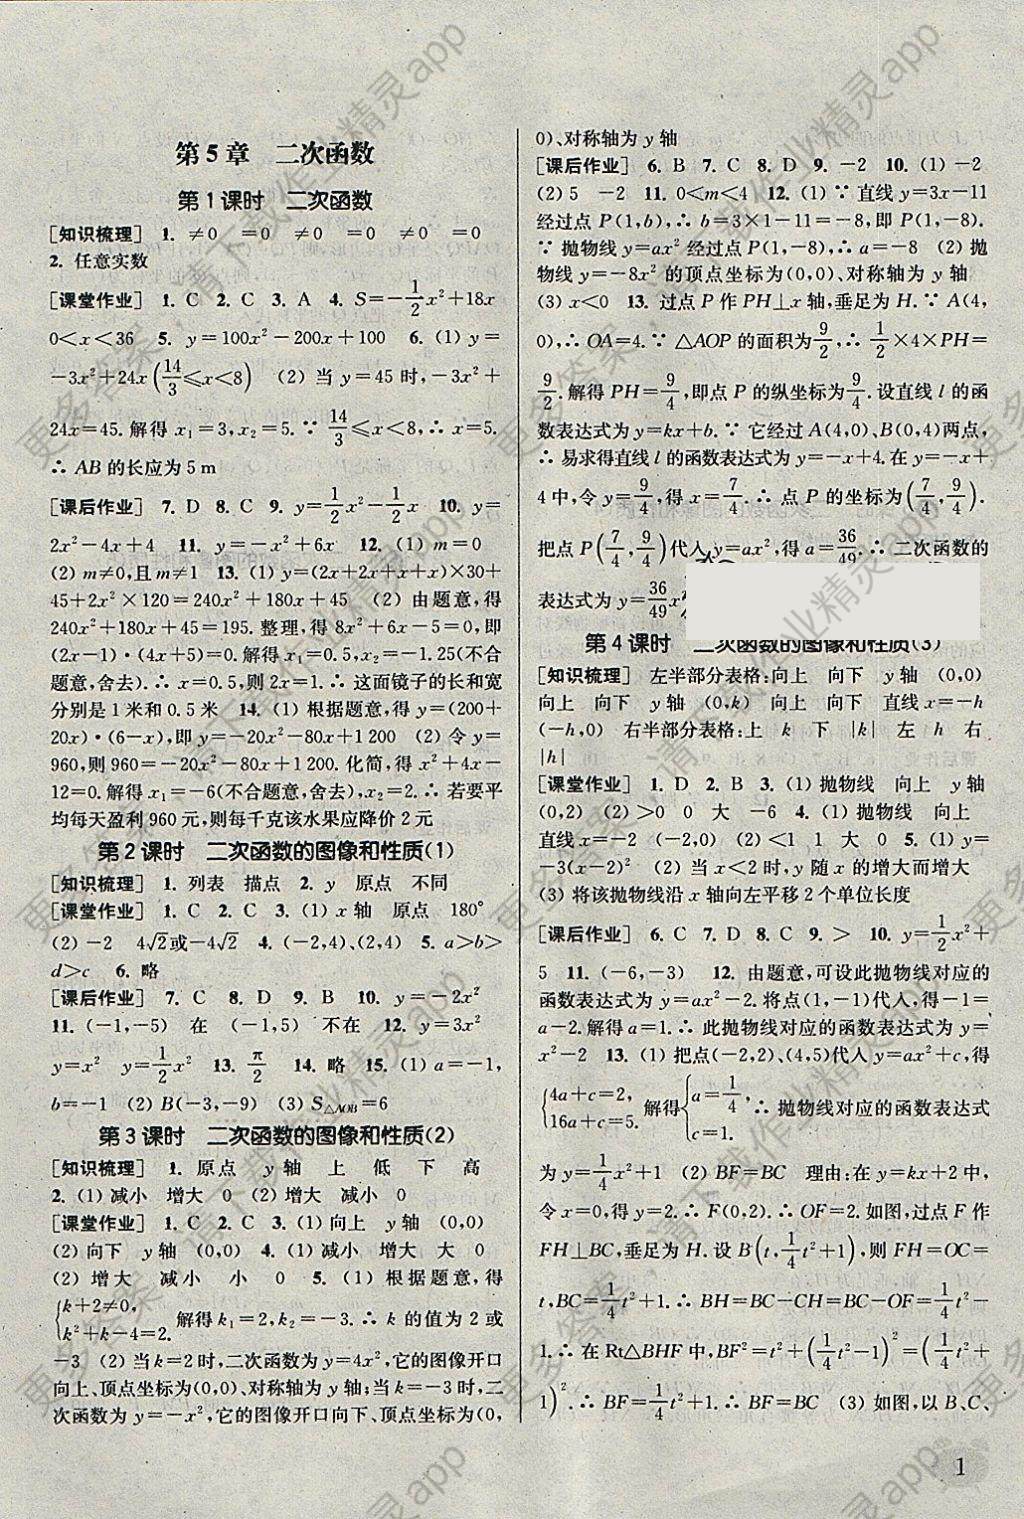 第5章　二次函数
第1课时　二次函数
[知识梳理] 1. ≠0　=0　≠0　=0　≠0　=0
2. 任意实数
[课堂作业] 1. C 2. C 3. A 4. S=-1/2x²+18x
0<x<36 5. y=100x²-200x+100 6. (1) y=
-3x²+24x(14/3≤x<8) (2) 当 y=45 时,-3x²+
24x=45. 解得 x₁=3,x₂=5. ∵ 14/3≤x<8,∴ x=5.
∴ AB 的长应为 5 m
[课后作业] 7. D 8. C 9. y=1/2x²-1/2x 10. y=
2x²-4x+4 11. y=-x²+6x 12. (1) m=0
(2) m≠0,且 m≠1 13. (1) y=(2x+2x+x+x)×30+
45+2x²×120=240x²+180x+45 (2) 由题意,得
240x²+180x+45=195. 整理,得 8x²+6x-5=0,即
(2x-1)·(4x+5)=0. 解得 x₁=0.5,x₂=-1.25(不合
题意,舍去). ∴ x=0.5,则 2x=1. ∴ 这面镜子的长和宽
分别是 1 米和 0.5 米 14. (1) 根据题意,得 y=(200+
20x)·(6-x),即 y=-20x²-80x+1 200 (2) 令 y=
960,则 960=-20x²-80x+1 200. 化简,得 x²+4x-
12=0. 解得 x₁=-6(不合题意,舍去),x₂=2. ∴ 若要平
均每天盈利 960 元,则每千克该水果应降价 2 元
第2课时　二次函数的图像和性质(1)
[知识梳理] 1. 列表　描点 2. y　原点　不同
[课堂作业] 1. C 2. C 3. (1) x 轴　原点　180°
(2) -2　4√2或-4√2 4. (-2,4)、(2,4) 5. a>b>
d>c 6. 略
[课后作业] 7. C 8. D 9. B 10. y=-2x²
11. (-1,-5)　在　(-1,5)　不在 12. y=3x²
y=x²　y=1/2x² 13. π/2 14. 略 15. (1) a=-1,
b=-1 (2) B(-3,-9) (3) S△AOB=6
第3课时　二次函数的图像和性质(2)
[知识梳理] 1. 原点　y 轴　上　低　下　高
2. (1) 减小　增大　0 (2) 增大　减小　0
[课堂作业] 1. C 2. C 3. (1) 向上　y 轴　(0,0)
(2) 向下　y 轴　(0,0) 4. (1) 减小　增大　大　0
(2) 增大　减小　小　0 5. (1) 根据题意,得
{k+2≠0, k²+k-4=2. 解得 k₁=2,k₂=-3. ∴ k 的值为 2 或
-3 (2) 当 k=2 时,二次函数为 y=4x²,它的图像开口
向上、顶点坐标为(0,0)、对称轴为 y 轴;当 k=-3 时,二
次函数为 y=-x²,它的图像开口向下、顶点坐标为(0,
0)、对称轴为 y 轴
[课后作业] 6. B 7. C 8. D 9. -2 10. (1) -2
(2) 5　-2 11. 0<m<4 12. (1) ∵ 直线 y=3x-11
经过点 P(1,b),∴ b=3×1-11=-8,即 P(1,-8).
∵ 抛物线 y=ax² 经过点 P(1,-8),∴ a=-8 (2) 抛
物线 y=-8x² 的顶点坐标为(0,0)、对称轴为 y 轴
(3) x<0 13. 过点 P 作 PH⊥x 轴,垂足为 H. ∵ A(4,
0),∴ OA=4. ∵ △AOP 的面积为9/2,∴ 1/2×4×PH=
9/2. 解得 PH=9/4,即点 P 的纵坐标为9/4. 设直线 l 的函
数表达式为 y=kx+b. ∵ 它经过 A(4,0)、B(0,4)两点,
∴ 易求得直线 l 的函数表达式为 y=-x+4. 在 y=-x+
4 中,令 y=9/4,得 x=7/4. ∴ 点 P 的坐标为(7/4,9/4).
把点 P(7/4,9/4)代入 y=ax²,得 a=36/49. ∴ 二次函数的
表达式为 y=36/49x²
第4课时　二次函数的图像和性质(3)
[知识梳理] 左半部分表格:向上　向下　y 轴　(0,0)
向上　向下　y 轴　(0,k)　向上　向下　直线 x=-h
(-h,0)　右半部分表格:上　k　下　|k|　左　h　右
|h|
[课堂作业] 1. D 2. B 3. (1) 抛物线　向上　y 轴
(0,2) (2) >0　0　大　-6 4. (1) 抛物线　向上
直线 x=-2　(-2,0) (2) <1　1　大　0 5. (1) y=
-3(x-2)² (2) 当 x<2 时,y 随 x 的增大而增大
(3) 将该抛物线沿 x 轴向左平移 2 个单位长度
[课后作业] 6. C 7. D 8. C 9. > 10. y=1/2x²+
5 11. (-6,-3) 12. 由题意,可设此抛物线对应的
函数表达式为 y=ax²-2. 将点(1,-1)代入,得-1=
a-2. 解得 a=1. ∴ 此抛物线对应的函数表达式为 y=
x²-2 13. (1) 把点(-2,2)、(4,5)代入 y=ax²+c,得
{4a+c=2, 16a+c=5. 解得{a=1/4, c=1. ∴ 抛物线对应的函数表达式
为 y=1/4x²+1 (2) BF=BC　理由:在 y=kx+2 中,
令 x=0,得 y=2. ∴ F(0,2). ∴ OF=2. 如图,过点 F 作
FH⊥BC,垂足为 H. 设 B(t,1/4t²+1),则 FH=OC=
t,BC=1/4t²+1. ∴ BH=BC-CH=BC-OF=1/4t²-
1. ∴ 在 Rt△BHF 中,BF²=t²+(1/4t²-1)²=(1/4t²+
1)². ∴ BF=1/4t²+1. ∴ BF=BC (3) 如图,以 B、C、
1
更多答案,请下载作业精灵app